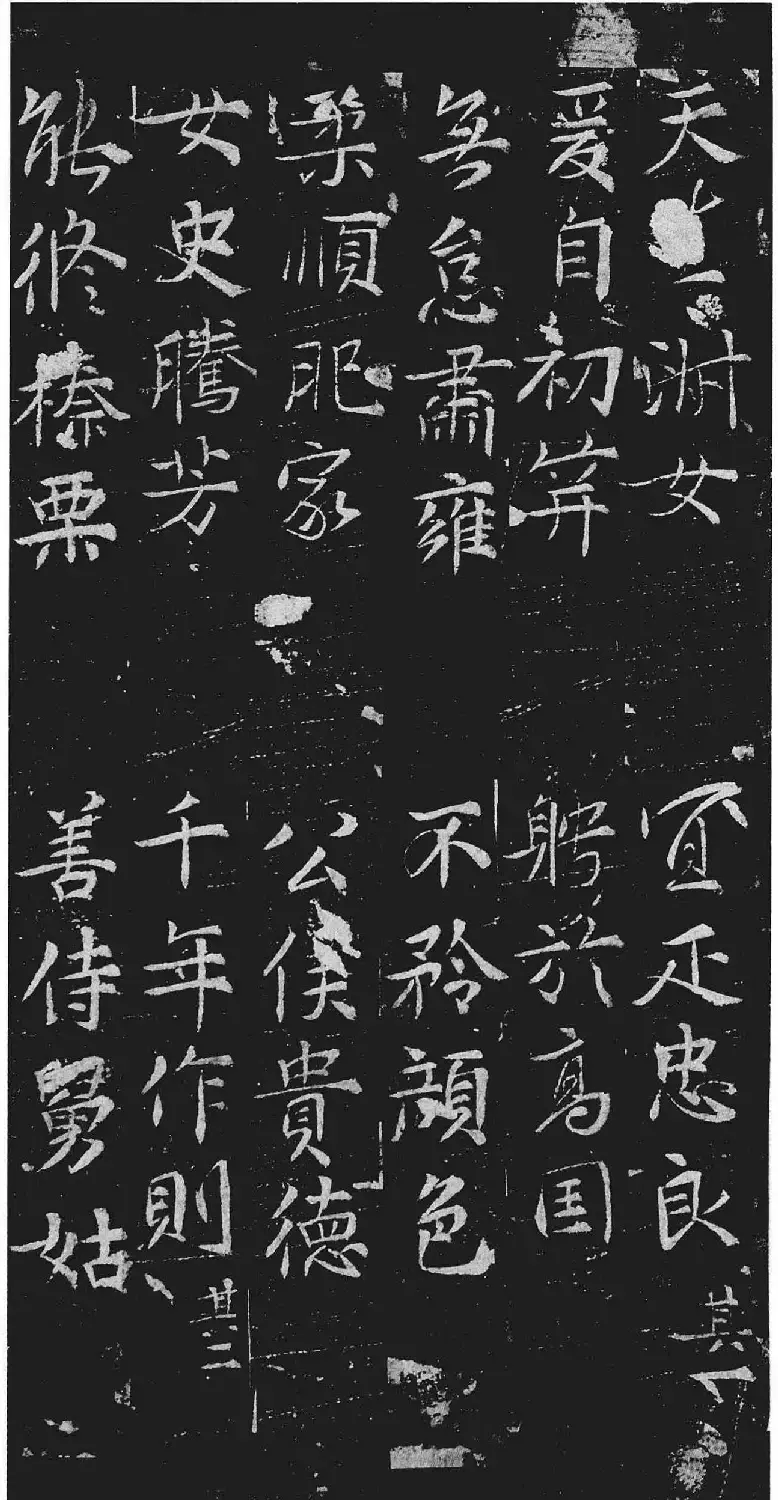 天淑女 宜疋忠良 其一
爰自初笄 聘於高囯
無怠肅雍 不矜顔色
柔順肥家 公侯貴德
女史騰芳 千年作則 其二
能修榛栗 善侍舅姑